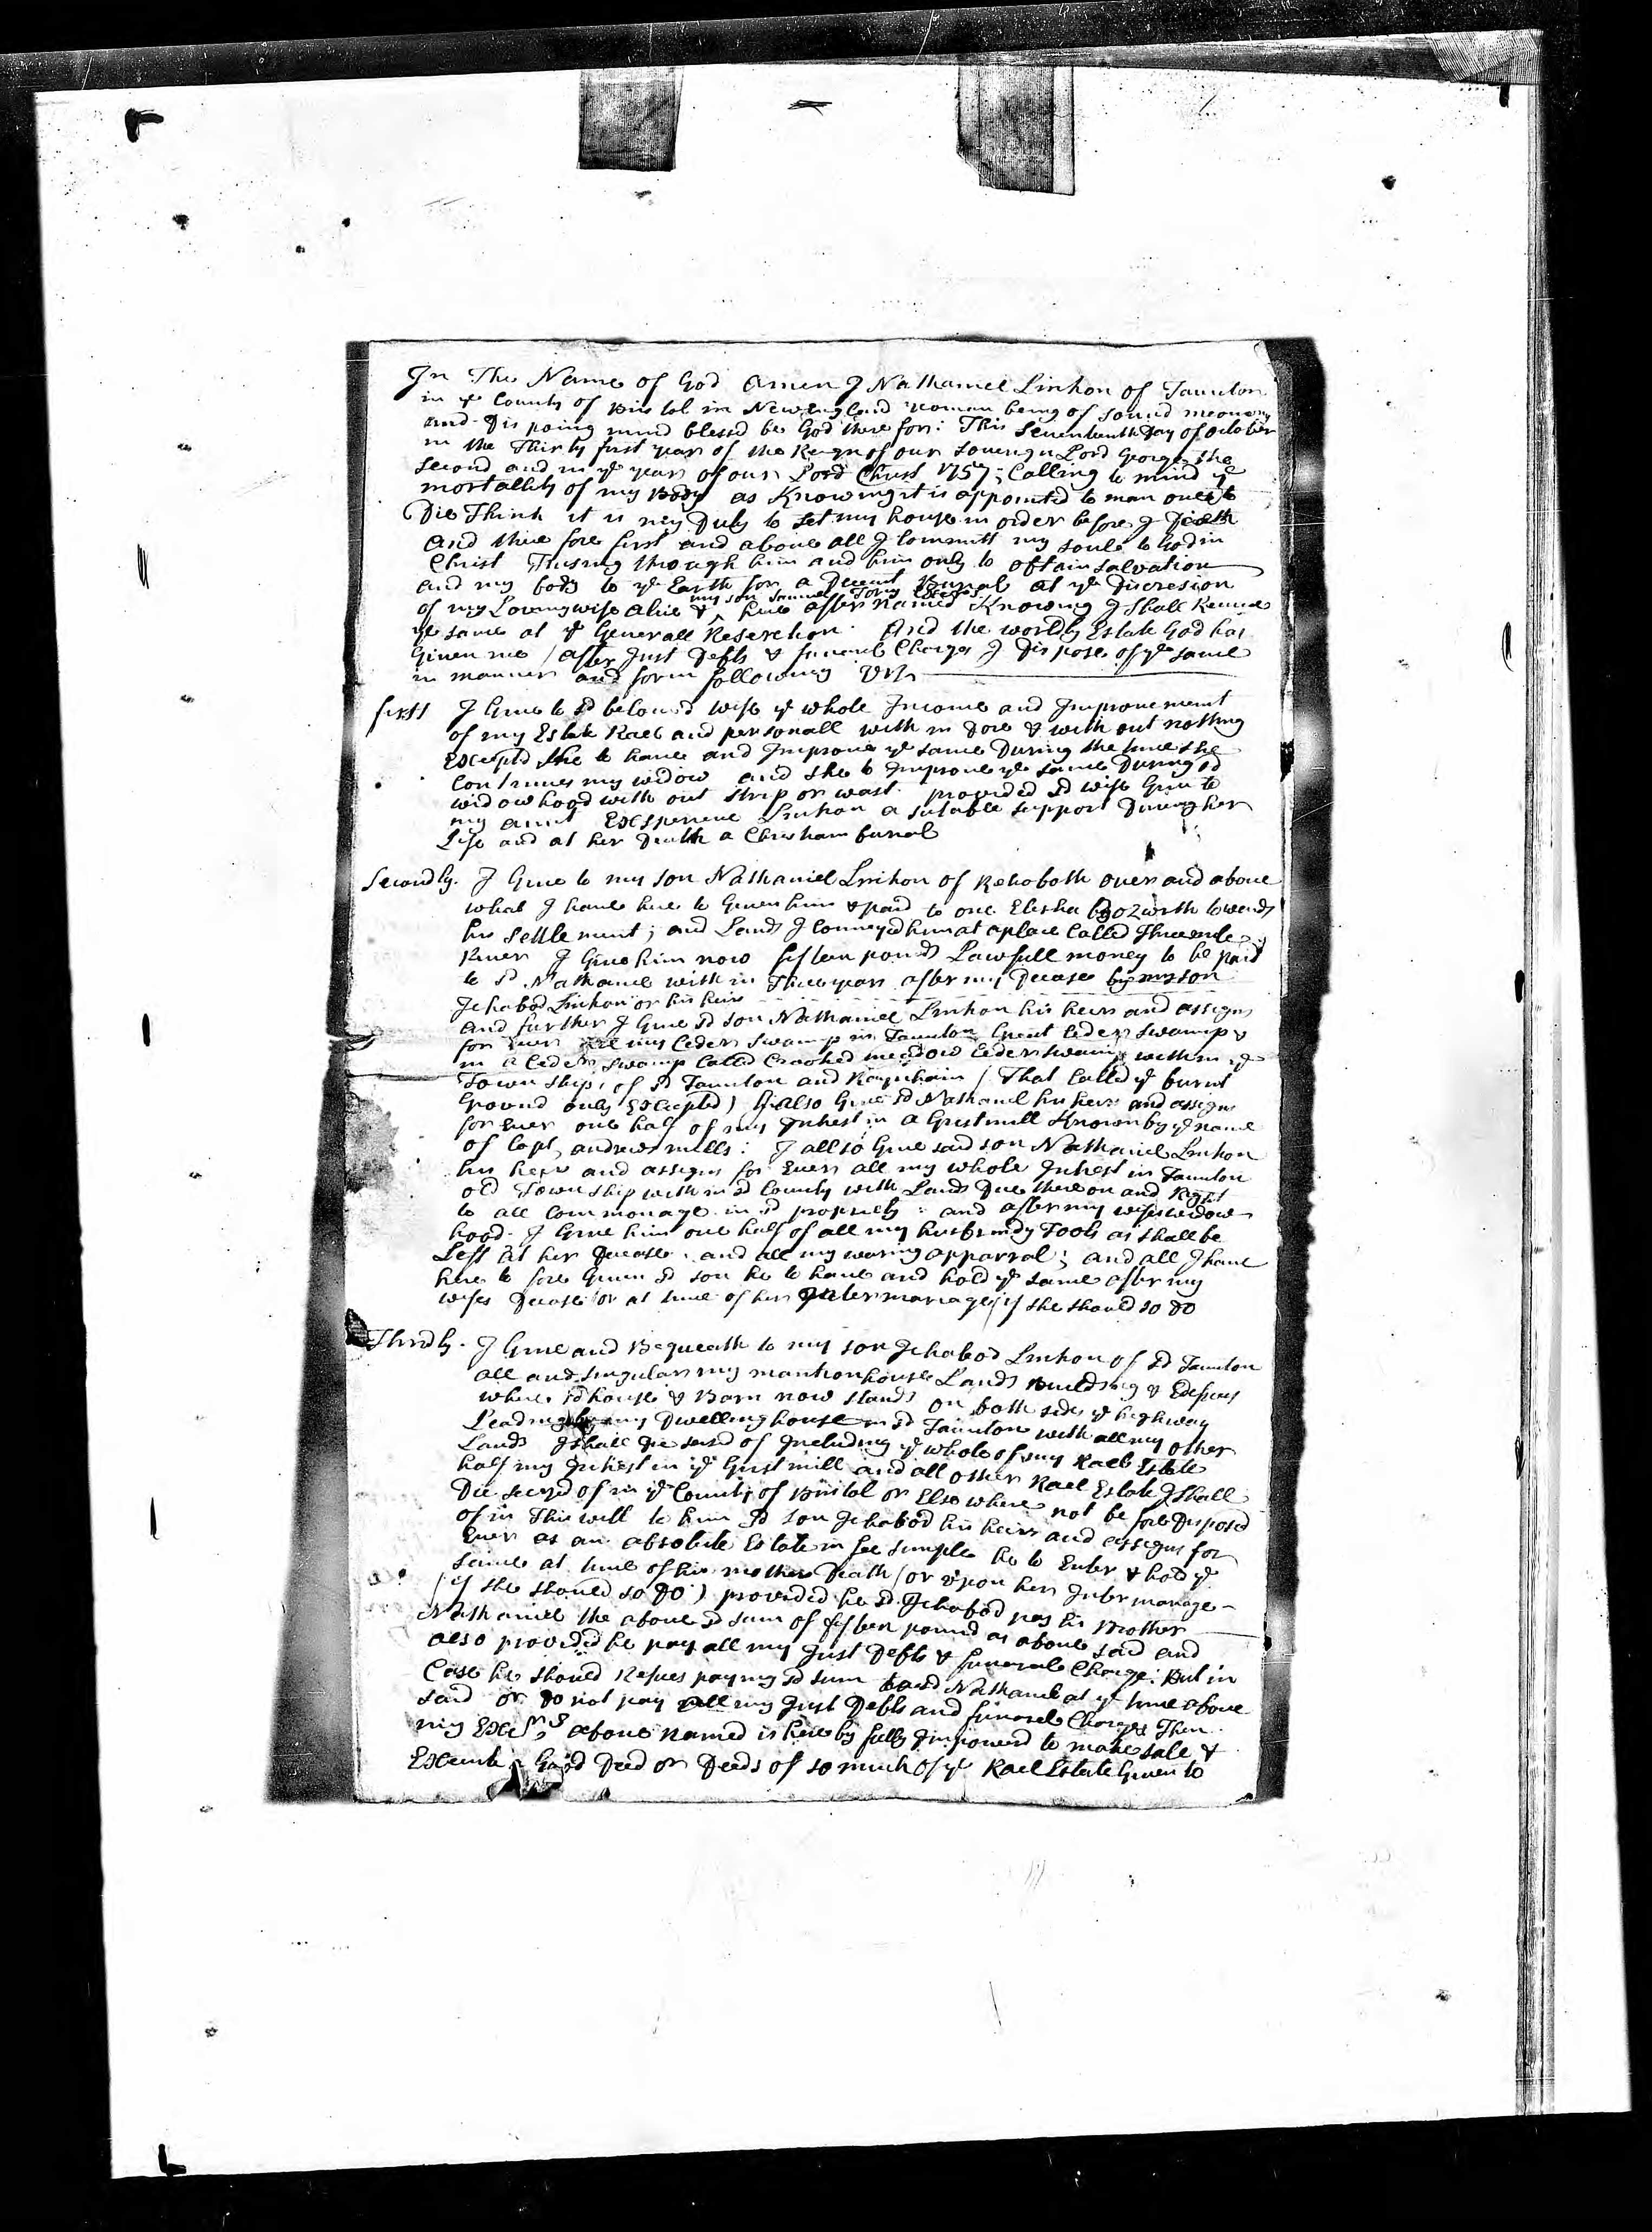 In The Name of God Amen I Nathaniel Linkon of Taunton
in ye County of Bristol in New england yeoman being of sound meomery
and Disposing mind blessd be God therefore: This Seventeenth Day of October
in the Thirty first year of the Reign of our Soveraign Lord George the
Second and in ye year of our Lord Christ 1757; Calling to mind ye
mortallity of my Body as Knowing it is appointed to man once to
Die Think it is my Duty to Set my house in order before I Dieth
And therefore first and above all I Committ my Soule to God in
Christ Trusting through him and him only to obtain Salvation
and my body to ye Earth for a Decent Burial at ye Discresion
my son Samuel
of my Loving wife Alice & here after named Knowing I Shall Receive
ye same at ye Generall Reserection. And the worldly Estate God has
Given me / after Just Debts & funeral Charges I Dispose of ye same
in manner and form following Viz
first I Give to sd beloved wife ye whole Income and Improvement
of my Estate Rael and personall with in Dore & with out nothing
Excepted She to have and Improve ye same During the time she
Continues my widow and she to Improve ye same During sd
widowhood with out Strip or wast provided sd wife Give to
my aunt Exsperience Linkon a sutable support During her
Life and at her Death a Christian burial
Secondly. I Give to my son Nathaniel Linkon of Rehoboth over and above
what I have here to Given him & paid to one Elisha Bozworth towards
his Settlement; and Lands I Conveyed him at a place Called Three mile
River I Give him now fifteen pounds Lawfull money to be paid
to sd Nathaniel with in Three years after my Decease by my son
Ichabod Linkon or his heirs
and further I Give sd son Nathaniel Linkon his heirs and assigns
for Ever all my Ceder Swamp in Taunton Great Ceder Swamp &
in a Ceder Swamp Called Crooked meadow Ceder Swamp with in ye
Township of sd Taunton and Raynham / That Called ye burnt
Ground only Excepted) I also Give sd Nathaniel his heirs and assigns
for Ever one half of my Intrest in a Gristmill Known by ye name
of Capt andrews mills: I allso Give said son Nathaniel Linkon
his heirs and assigns for Ever all my whole Intrest in Taunton
old Township with in sd County with Lands Due there on and Right
to all Commonage in sd propriety: and after my wifes widow
hood. I Give him one half of all my husbendry Tools as shall be
Left at her Decease. and all my waring apparral; and all I have
here to fore Given sd son he to have and hold ye same after my
wifes Decease or at time of her Intermariage / if she should so do
Thirdly. I Give and Bequeath to my son Ichabod Linkon of sd Taunton
all and singular my mantion house Lands Building & Edefices
where sd house & Barn now stands on both sides ye highway
Leading by my Dwelling house in sd Taunton with all my other
Lands I shall Die seisd of Including ye whole of my Rael Estate
half my Intrest in ye Grist mill and all other Rael Estate I Shall
Die seized of in ye County of Bristol or Elsewhere not before Disposed
of in This will to him sd son Ichabod his heirs and assigns for
Ever as an absolute Estate in fee simple he to Enter & hold ye
same at time of his mothers Death / or upon her Intermariage
/ if she should so do) provided he sd Ichabod pay his Brother
Nathaniel the above sd sum of fifteen pound as above said and
also provided he pay all my Just Debts & funeral Charge: But in
Case he should Refues paying sd sum to sd Nathaniel at ye time above
said or do not pay all my Just Debts and funeral Charges Then
my Execrs above named is hereby fully Impowerd to make sale &
Execute Good Deed or Deeds of so much of ye Rael Estate Given to